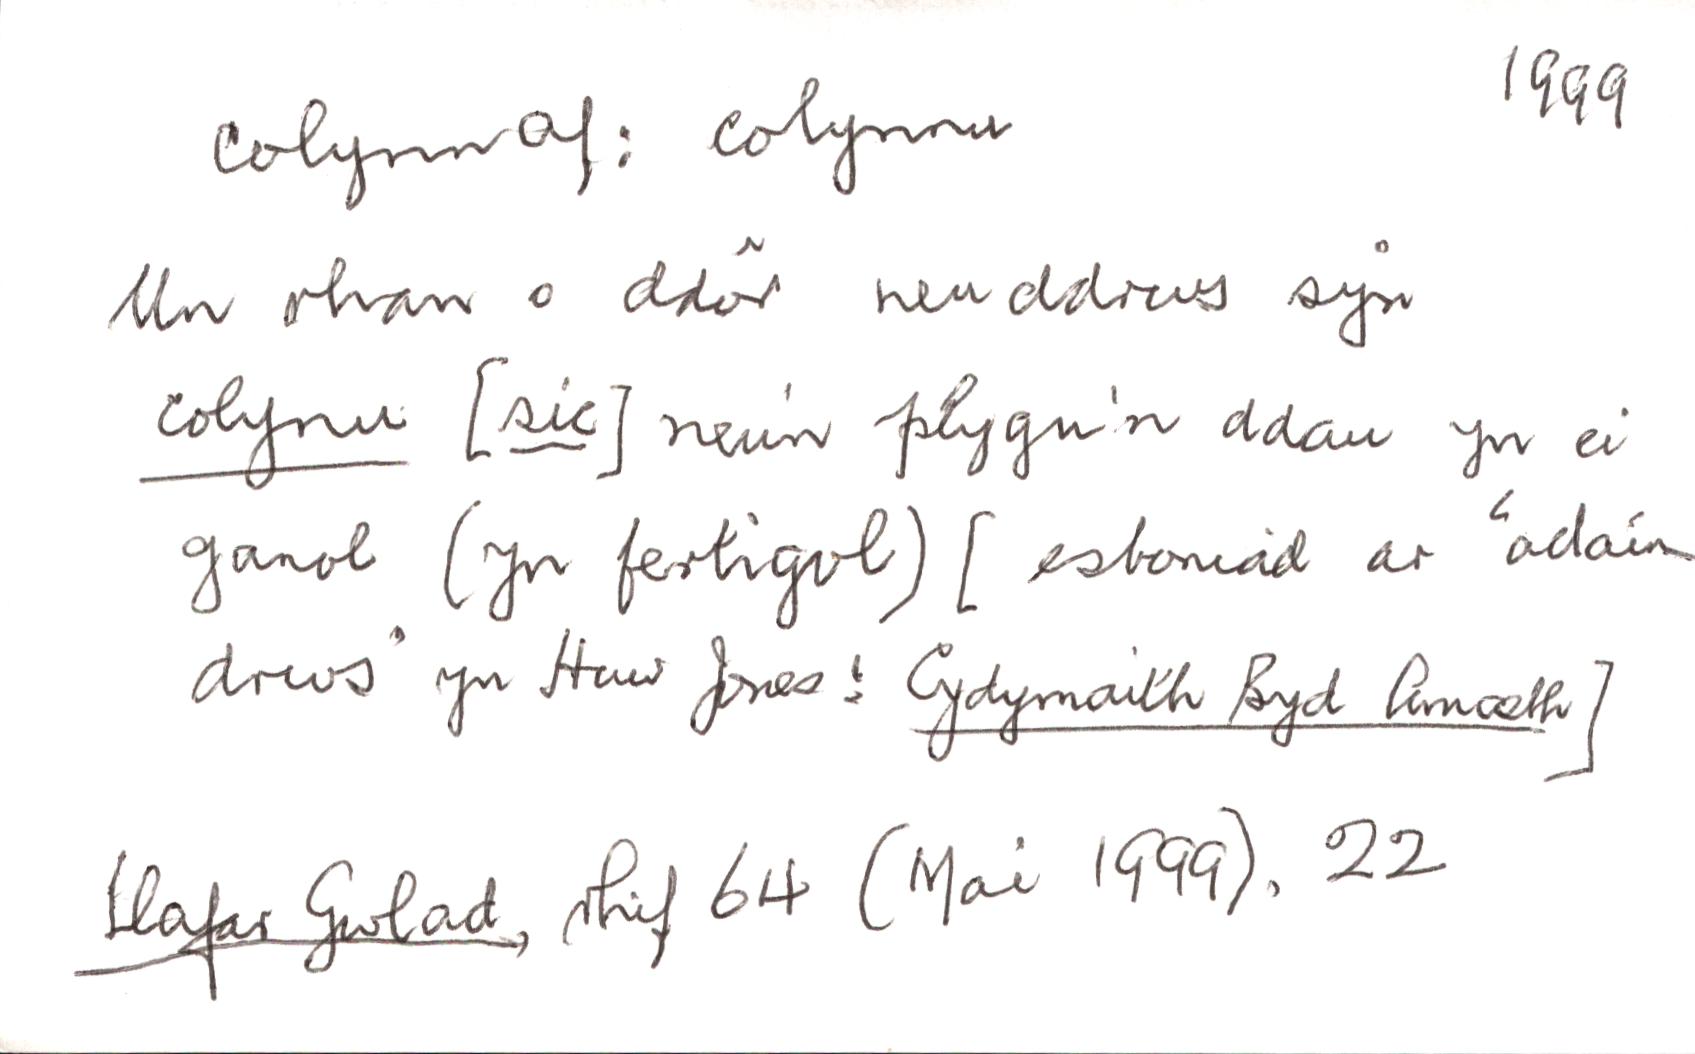 1999
colynnaf: colynnu
Un rhan o ddôr neu ddrws sy'n
colynu [sic] neu'n plygu'n ddau yn ei
ganol (yn fertigol) [esboniad ar "adain
drws" yn Huw Jones: Cydymaith Byd Amaeth]
Llafar Gwlad, rhif 64 (Mai 1999), 22